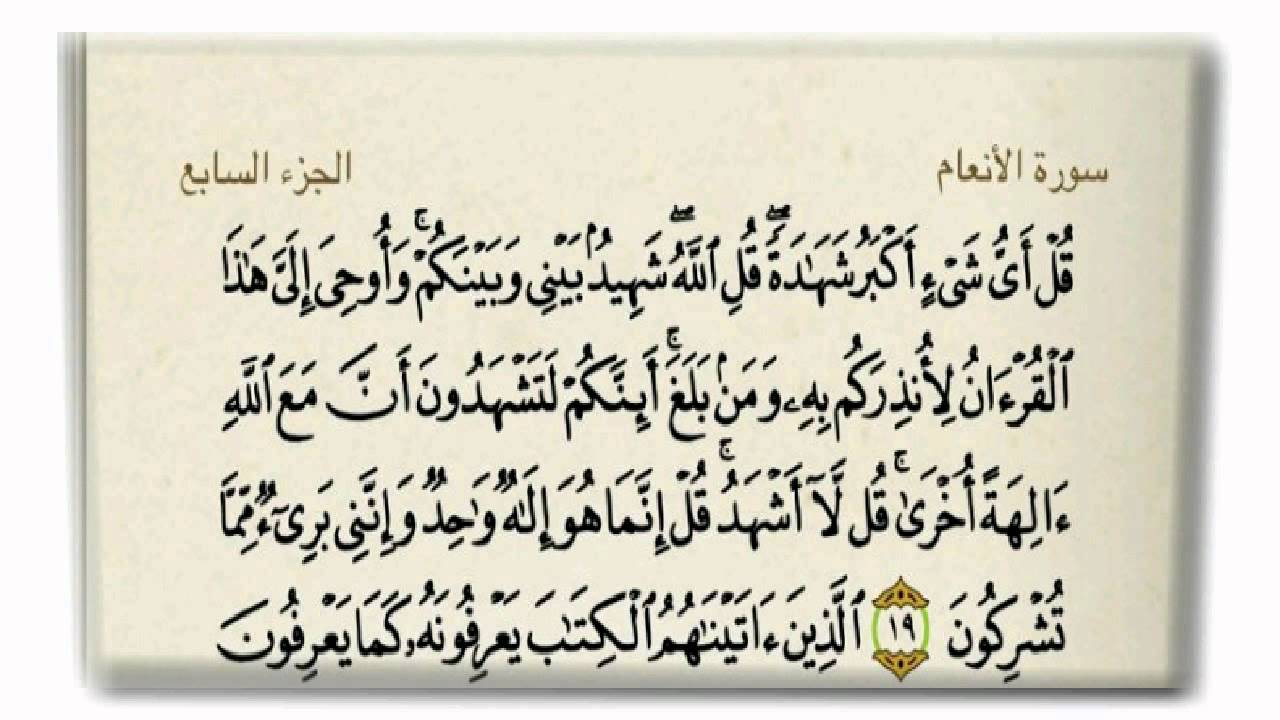 سورة الأنعام الجزء السابع
قُلْ أَىُّ شَىْءٍ أَكْبَرُ شَهَٰدَةً ۖ قُلِ ٱللَّهُ ۖ شَهِيدُۢ بَيْنِى وَبَيْنَكُمْ ۚ وَأُوحِىَ إِلَىَّ هَٰذَا
ٱلْقُرْءَانُ لِأُنذِرَكُم بِهِۦ وَمَنۢ بَلَغَ ۚ أَئِنَّكُمْ لَتَشْهَدُونَ أَنَّ مَعَ ٱللَّهِ
ءَالِهَةً أُخْرَىٰ ۚ قُل لَّآ أَشْهَدُ ۚ قُلْ إِنَّمَا هُوَ إِلَٰهٌ وَٰحِدٌ وَإِنَّنِى بَرِىٓءٌ مِّمَّا
تُشْرِكُونَ ١٩ ٱلَّذِينَ ءَاتَيْنَٰهُمُ ٱلْكِتَٰبَ يَعْرِفُونَهُۥ كَمَا يَعْرِفُونَ